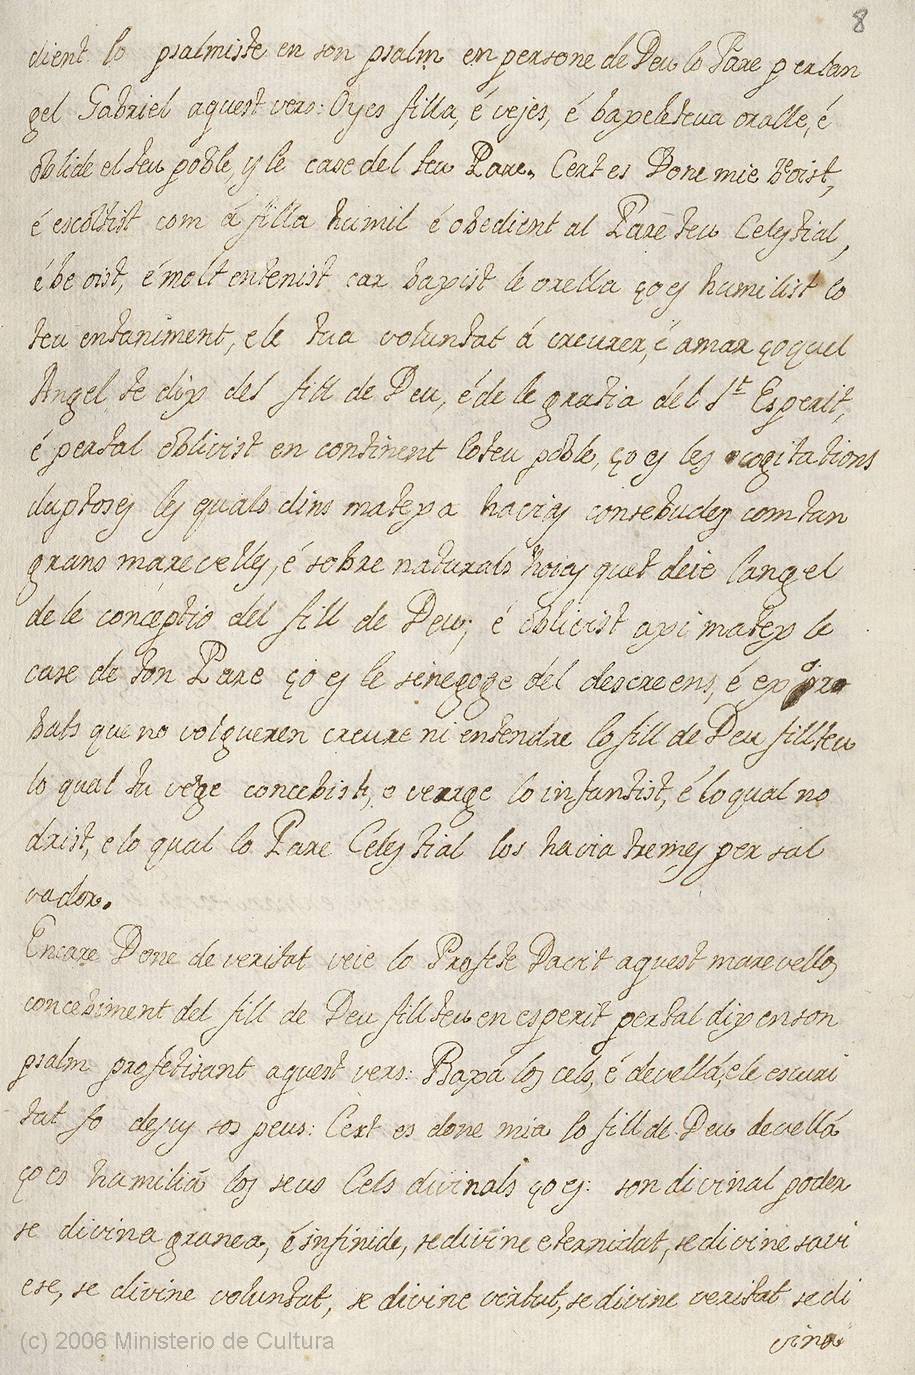 8
dient lo psalmiste en son psalm en persone de Deu lo Pare per lan
gel Gabriel aquest vers: Oyes filla, é vejes, é baxe la teua oralle, é
oblide el teu poble, y le case del teu Pare. Cert es Done mie hoist,
é escoltist com á filla humil é obedient al Pare teu Celestial,
é be oist, é molt entenist car baxist le orella ço es humilist lo
teu entaniment, e le tua voluntat á creurer, é amar ço quel
Angel te dix del fill de Deu, é de le gratia del St Esperit,
é pertal oblivist en continent lo teu poble, ço es les cogitations
duptoses les quals dins matexa havies consebudes com tan
grans marevelles, é sobre naturals hoies quet deie langel
de le conceptio del fill de Deu; é oblivist axi matex le
case de ton Pare ço es le sinegoge del descreens, é ex pro
bats que no volgueren creure ni entendre lo fill de Deu fill teu
lo qual tu vege concebist, e verge lo infantist, é lo qual no
drist, e lo qual lo Pare Celestial los havia tremes per sal
vador.
Encare Done de veritat veie lo Profete Davit aquest marevellos
concebiment del fill de Deu fill teu en esperit pertal dix en son
psalm profetisant aquest vers: Baxá los cels, é devellá, e le escuri
tat fo dejus sos peus: Cert es done mia lo fill de Deu devellá
ço es humiliá los seus Cels divinals ço es: son divinal poder
se divina granea, é infinide, se divine eternidat, se divine savi
ese, se divine voluntat, se divine virtut, se divine veritat se di
vina
(c) 2006 Ministerio de Cultura